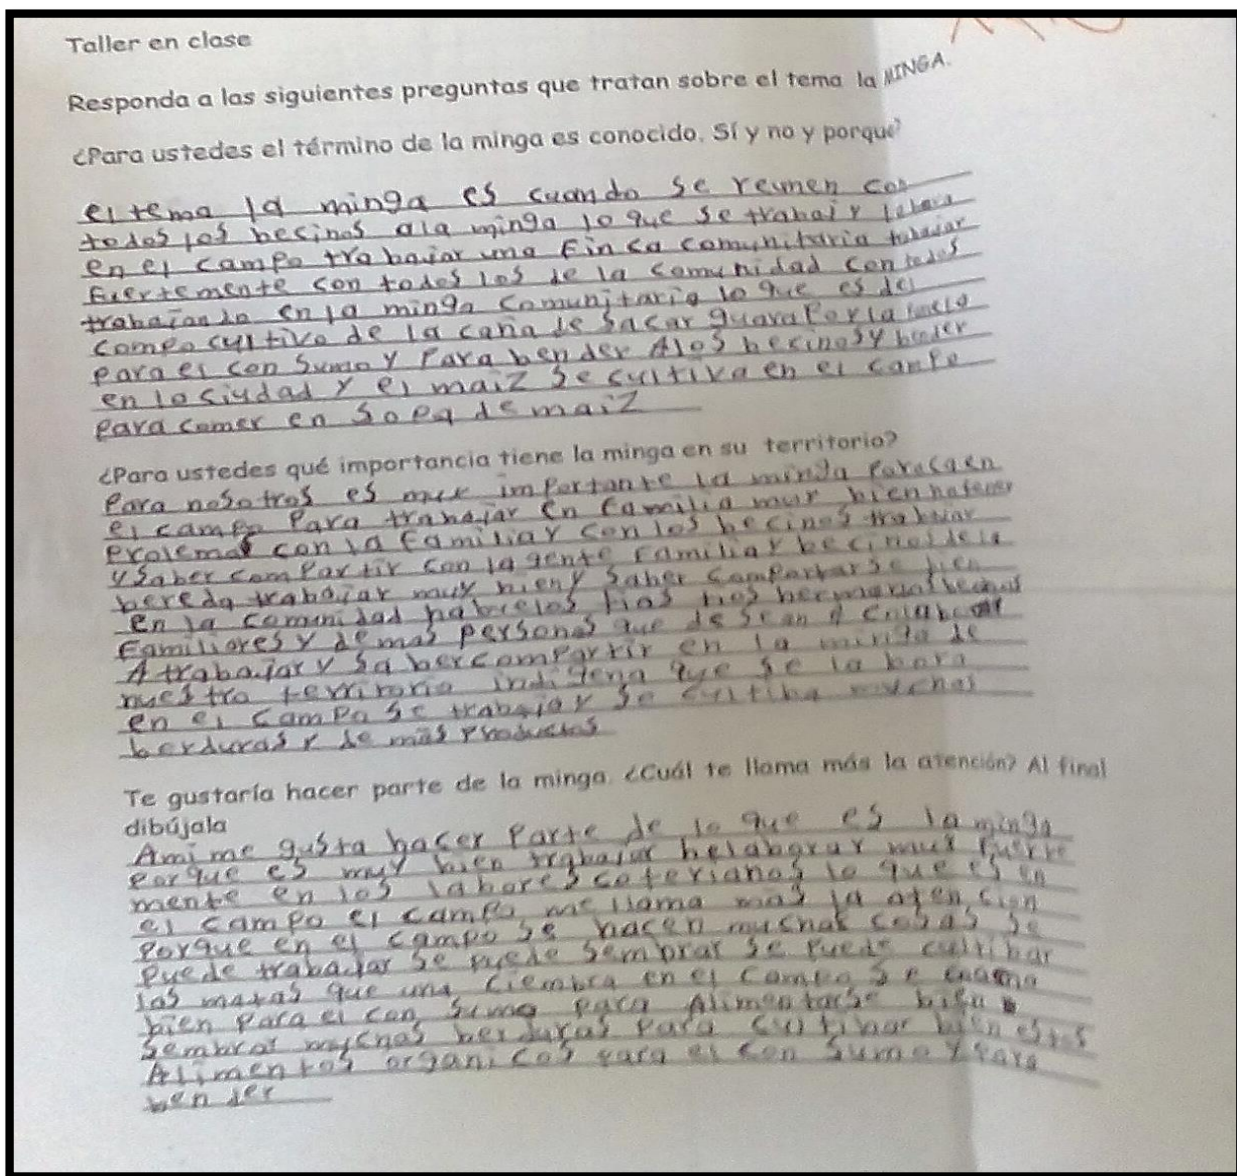 Taller en clase
Responda a las siguientes preguntas que tratan sobre el tema la MINGA.
¿Para ustedes el término de la minga es conocido, Sí y no y porqué?
el tema la minga es cuando se reunen con
todos los becinos ala minga lo que se trabaja y
en el campo trabajar una Finca comunitaria trabajar
Fuertemente con todos los de la comunidad con todos
trabajando en la minga comunitaria lo que es del
campo cultivo de la caña de sacar guarapo y la
para el con sumo y Para bender Alos becinos y bender
en lo siudad y el maiz se cultiva en el campo
para comer en sopa de maiz
¿Para ustedes qué importancia tiene la minga en su territorio?
Para nosotros es muy importante la minga Porque en
el campo Para trabajar en Familia muy bien no tener
prolemas con la Familia y con los becinos trabajar
y saber compartir con la gente Familia y becinos de la
bereda trabajar muy bien y saber compartarse bien
en la comunidad habuelos tias tios hermanos
Familiores y demas personas que desean
A trabajar y saber compartir en la minga de
nuestro territorio indigena que se labora
en el campo se trabaja y se cultiba muchas
berduras y de mas productos
Te gustaría hacer parte de la minga. ¿Cuál te llama más la atención? Al final
dibújala
Ami me gusta hacer Parte de lo que es la minga
porque es muy bien trabajar helaborar muy fuerte
mente en los labores coterianos lo que es en
el campo el campo me llama mas la atencion
porque en el campo se hacen muchas cosas se
puede trabajar se puede sembrar se puede cultibar
las matas que una ciembra en el campo se
bien para el con sumo para Alimentarse bien
sembrar muchas berduras para cultibar bien estos
Alimentos organicos para el con sumo y para
bender